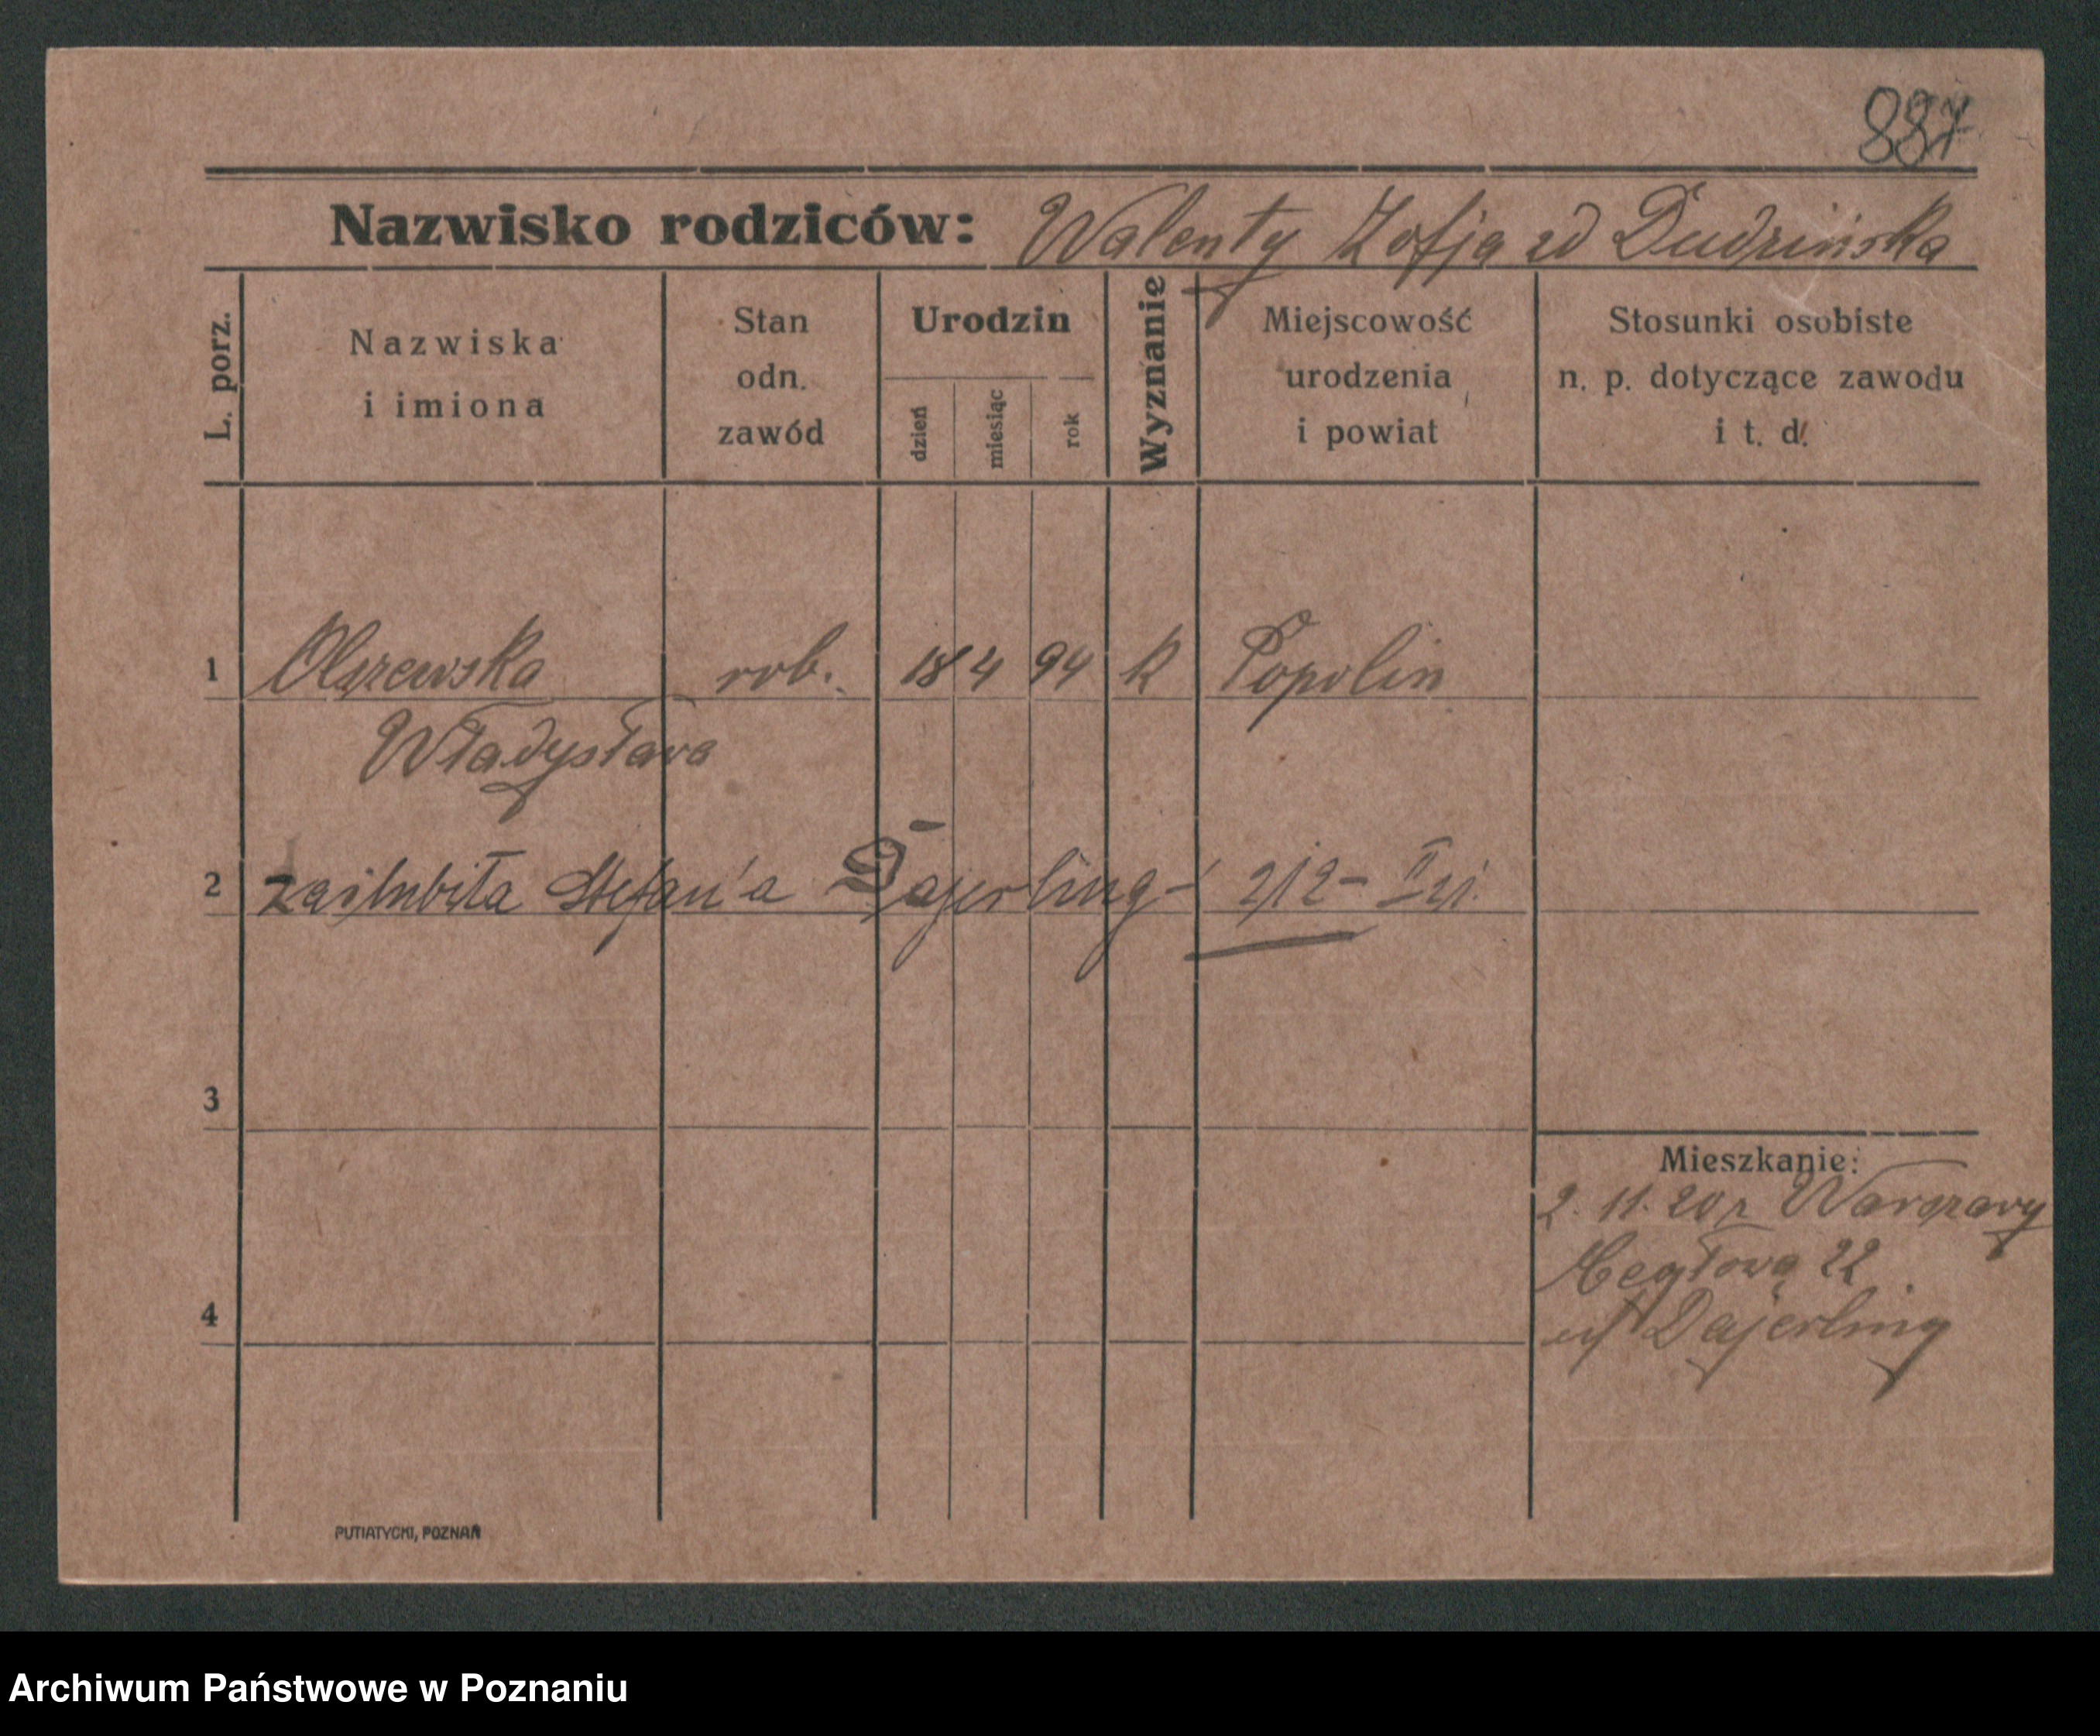 887
Nazwisko rodziców: Walenty Zofja zd Dudzińska
L. porz.
Nazwiska i imiona
Stan odn. zawód
Urodzin
dzień
miesiąc
rok
Wyznanie
Miejscowość urodzenia i powiat
Stosunki osobiste n. p. dotyczące zawodu i t. d.
1 Olszewska rob. 18 4 94 k Popolin
Władysława
2 zaślubiła Stefan'a Dajerling - 2/2 - II 21.
3
Mieszkanie:
2. 11. 20 z Warszawy
22
4
Dajerling
PUTIATYCKI, POZNAŃ
Archiwum Państwowe w Poznaniu